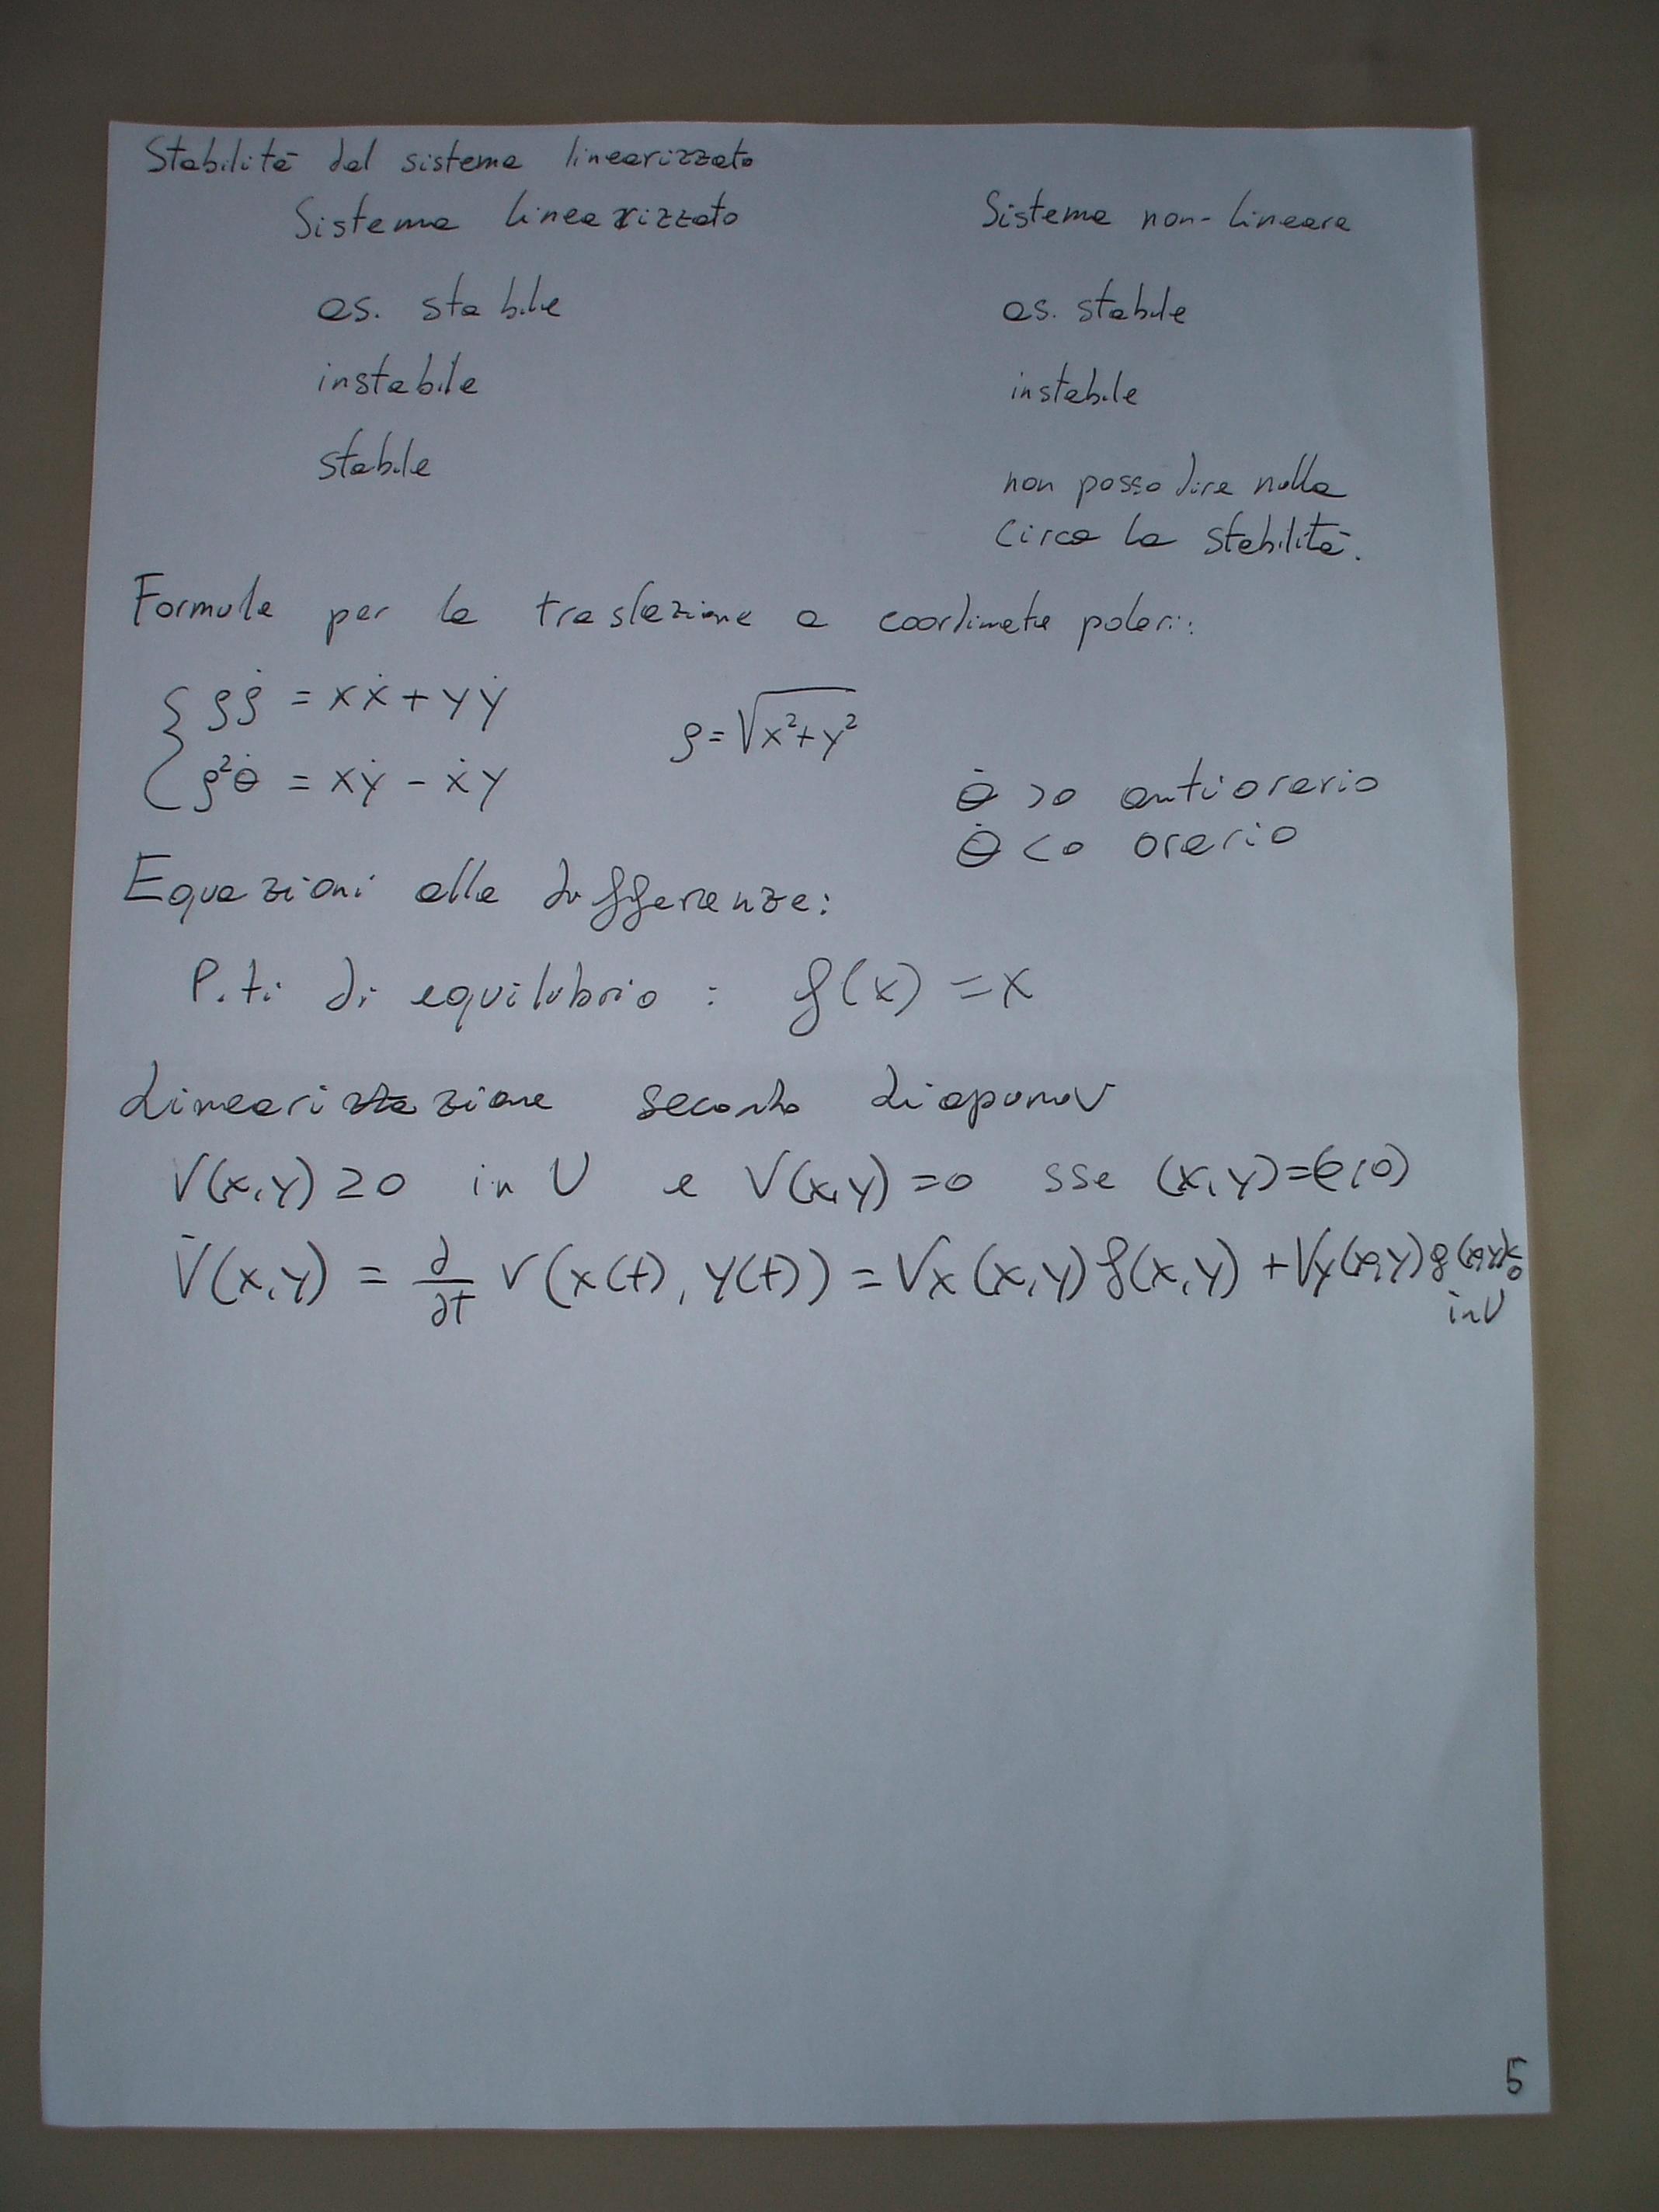 Stabilità del sistema linearizzato
Sistema linearizzato Sistema non-lineare
as. stabile as. stabile
instabile instabile
stabile non posso dire nulla
circa la stabilità.
Formule per la traslazione a coordinate polari:
ρρ̇ = xẋ + yẏ
ρ = √(x²+y²)
ρ²θ̇ = xẏ - ẋy
θ̇ >0 antiorario
θ̇ <0 orario
Equazioni alle differenze:
P.ti di equilibrio : f(x) = x
Linearizzazione secondo Liapunov
V(x,y) ≥0 in U e V(x,y) =0 sse (x,y)=(0,0)
V̇(x,y) = ∂/∂t V(x(t), y(t)) = Vx(x,y)f(x,y) + Vy(x,y)g(x,y)
in U
5